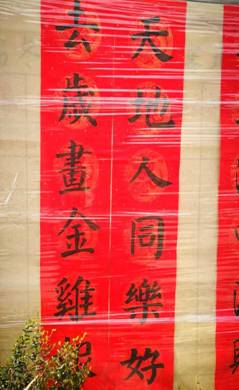 天地人同樂好
去歲畫金雞